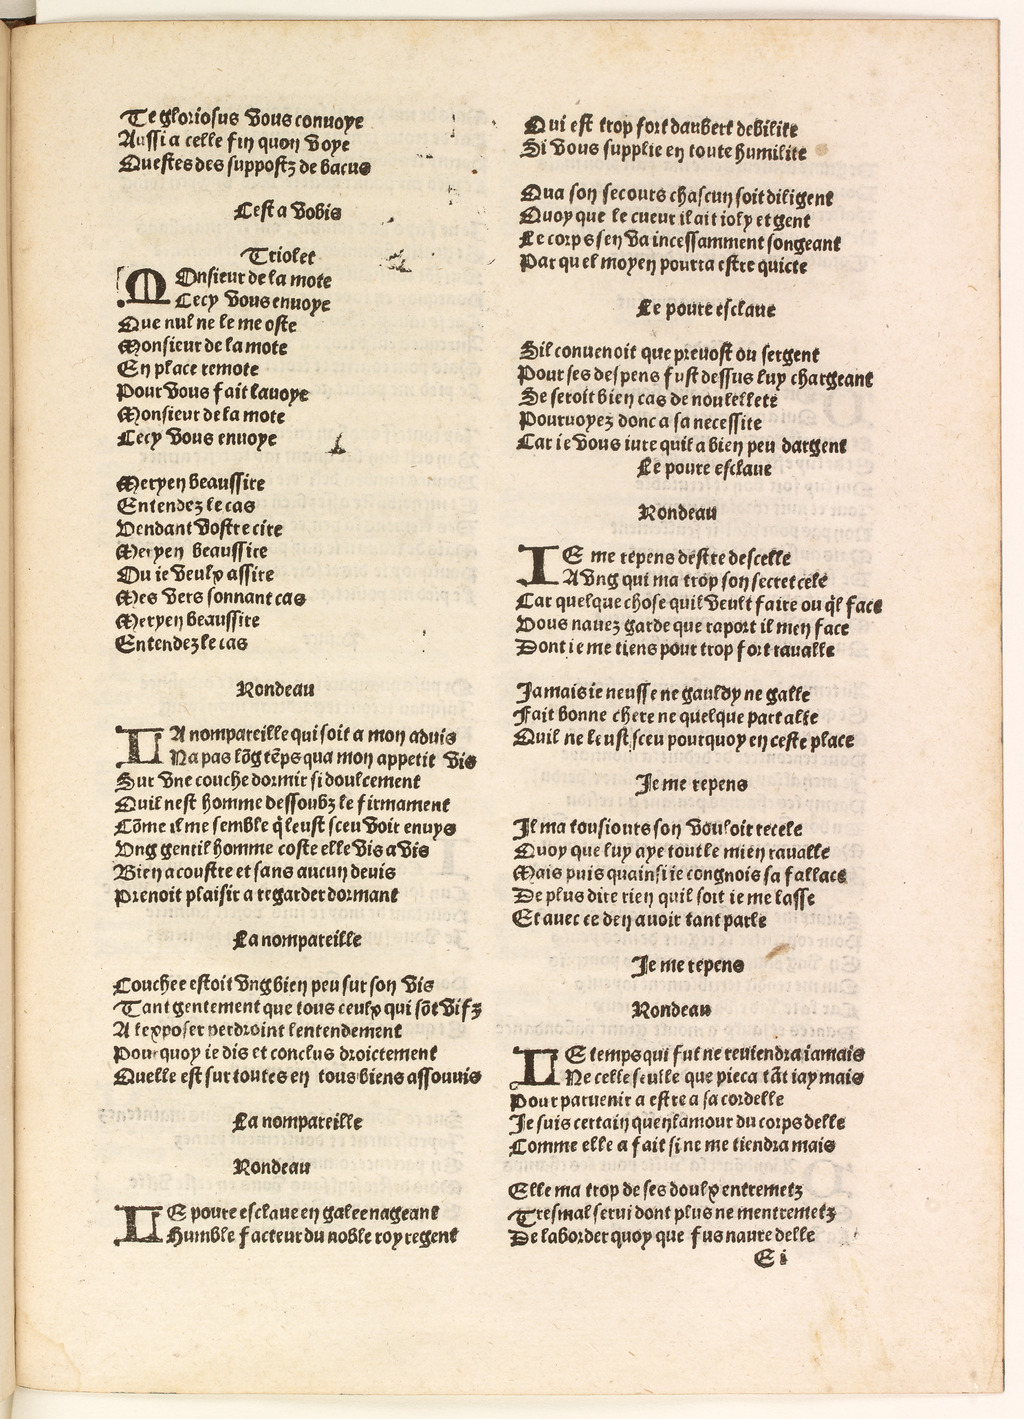 Te gloriosus vous conuoye
Aussi a celle fin quon voye
Questes des suppostz de bacus
Cest a vobis
Triolet
MOnsieur de la mote
Cecy vous enuoye
Que nul ne le me oste
Monsieur de la mote
En place remote
Pour vous fait lauoye
Monsieur de la mote
Cecy vous enuoye
Meryen beaussire
Entendez le cas
Pendant vostre cire
Meryen beaussire
Ou ie veulx assire
Mes vers sonnant cas
Meryen beaussire
Entendez le cas
Rondeau
LA nompareille qui soit a mon aduis
Na pas lõg tẽps qua mon appetit vis
Sur vne couche dormir si doulcement
Quil nest homme dessoubz le firmament
Cõme il me semble q̃ leust sceu voir enuys
Vng gentil homme coste elle vis a vis
Bien acoustre et sans aucun deuis
Prenoit plaisir a regarder dormant
La nompareille
Couchee estoit vng bien peu sur son vis
Tant gentement que tous ceulx qui sõt vifz
A lexposer perdroint lentendement
Pourquoy ie dis et conclus droictement
Quelle est sur toutes en tous biens assouuis
La nompareille
Rondeau
LE poure esclaue en galee nageant
Humble facteur du noble roy regent
Qui est trop fort daubert debilite
Si vous supplie en toute humilite
Qua son secours chascun soit diligent
Quoy que le cueur il ait ioly et gent
Le corps sen va incessamment songeant
Par quel moyen pourra estre quicte
Le poure esclaue
Sil conuenoit que preuost ou sergent
Pour ses despens fust dessus luy chargeant
Se seroit bien cas de nouuellete
Pouruoyez donc a sa necessite
Car ie vous iure quil a bien peu dargent
Le poure esclaue
Rondeau
IE me repens destre descelle
A vng qui ma trop son secret cele
Car quelque chose quil veult faire ou q̃l face
Vous nauez garde que raport il men face
Dont ie me tiens pour trop fort raualle
Jamais ie neusse ne gauldy ne galle
Fait bonne chere ne quelque part alle
Quil ne leust sceu pourquoy en ceste place
Je me repens
Il ma tousiours son vouloir recele
Quoy que luy aye tout le mien raualle
Mais puis quainsi ie congnois sa fallace
De plus dire rien quil soit ie me lasse
Et auec ce den auoir tant parle
Je me repens
Rondeau
LE temps qui fut ne reuiendra iamais
Ne celle seulle que pieca tãt iaymais
Pour paruenir a estre a sa cordelle
Je suis certain quen lamour du corps delle
Comme elle a fait si ne me tiendra mais
Elle ma trop de ses doulx entremetz
Tresmal serui dont plus ne mentremetz
De laborder quoy que fus naure delle
E i